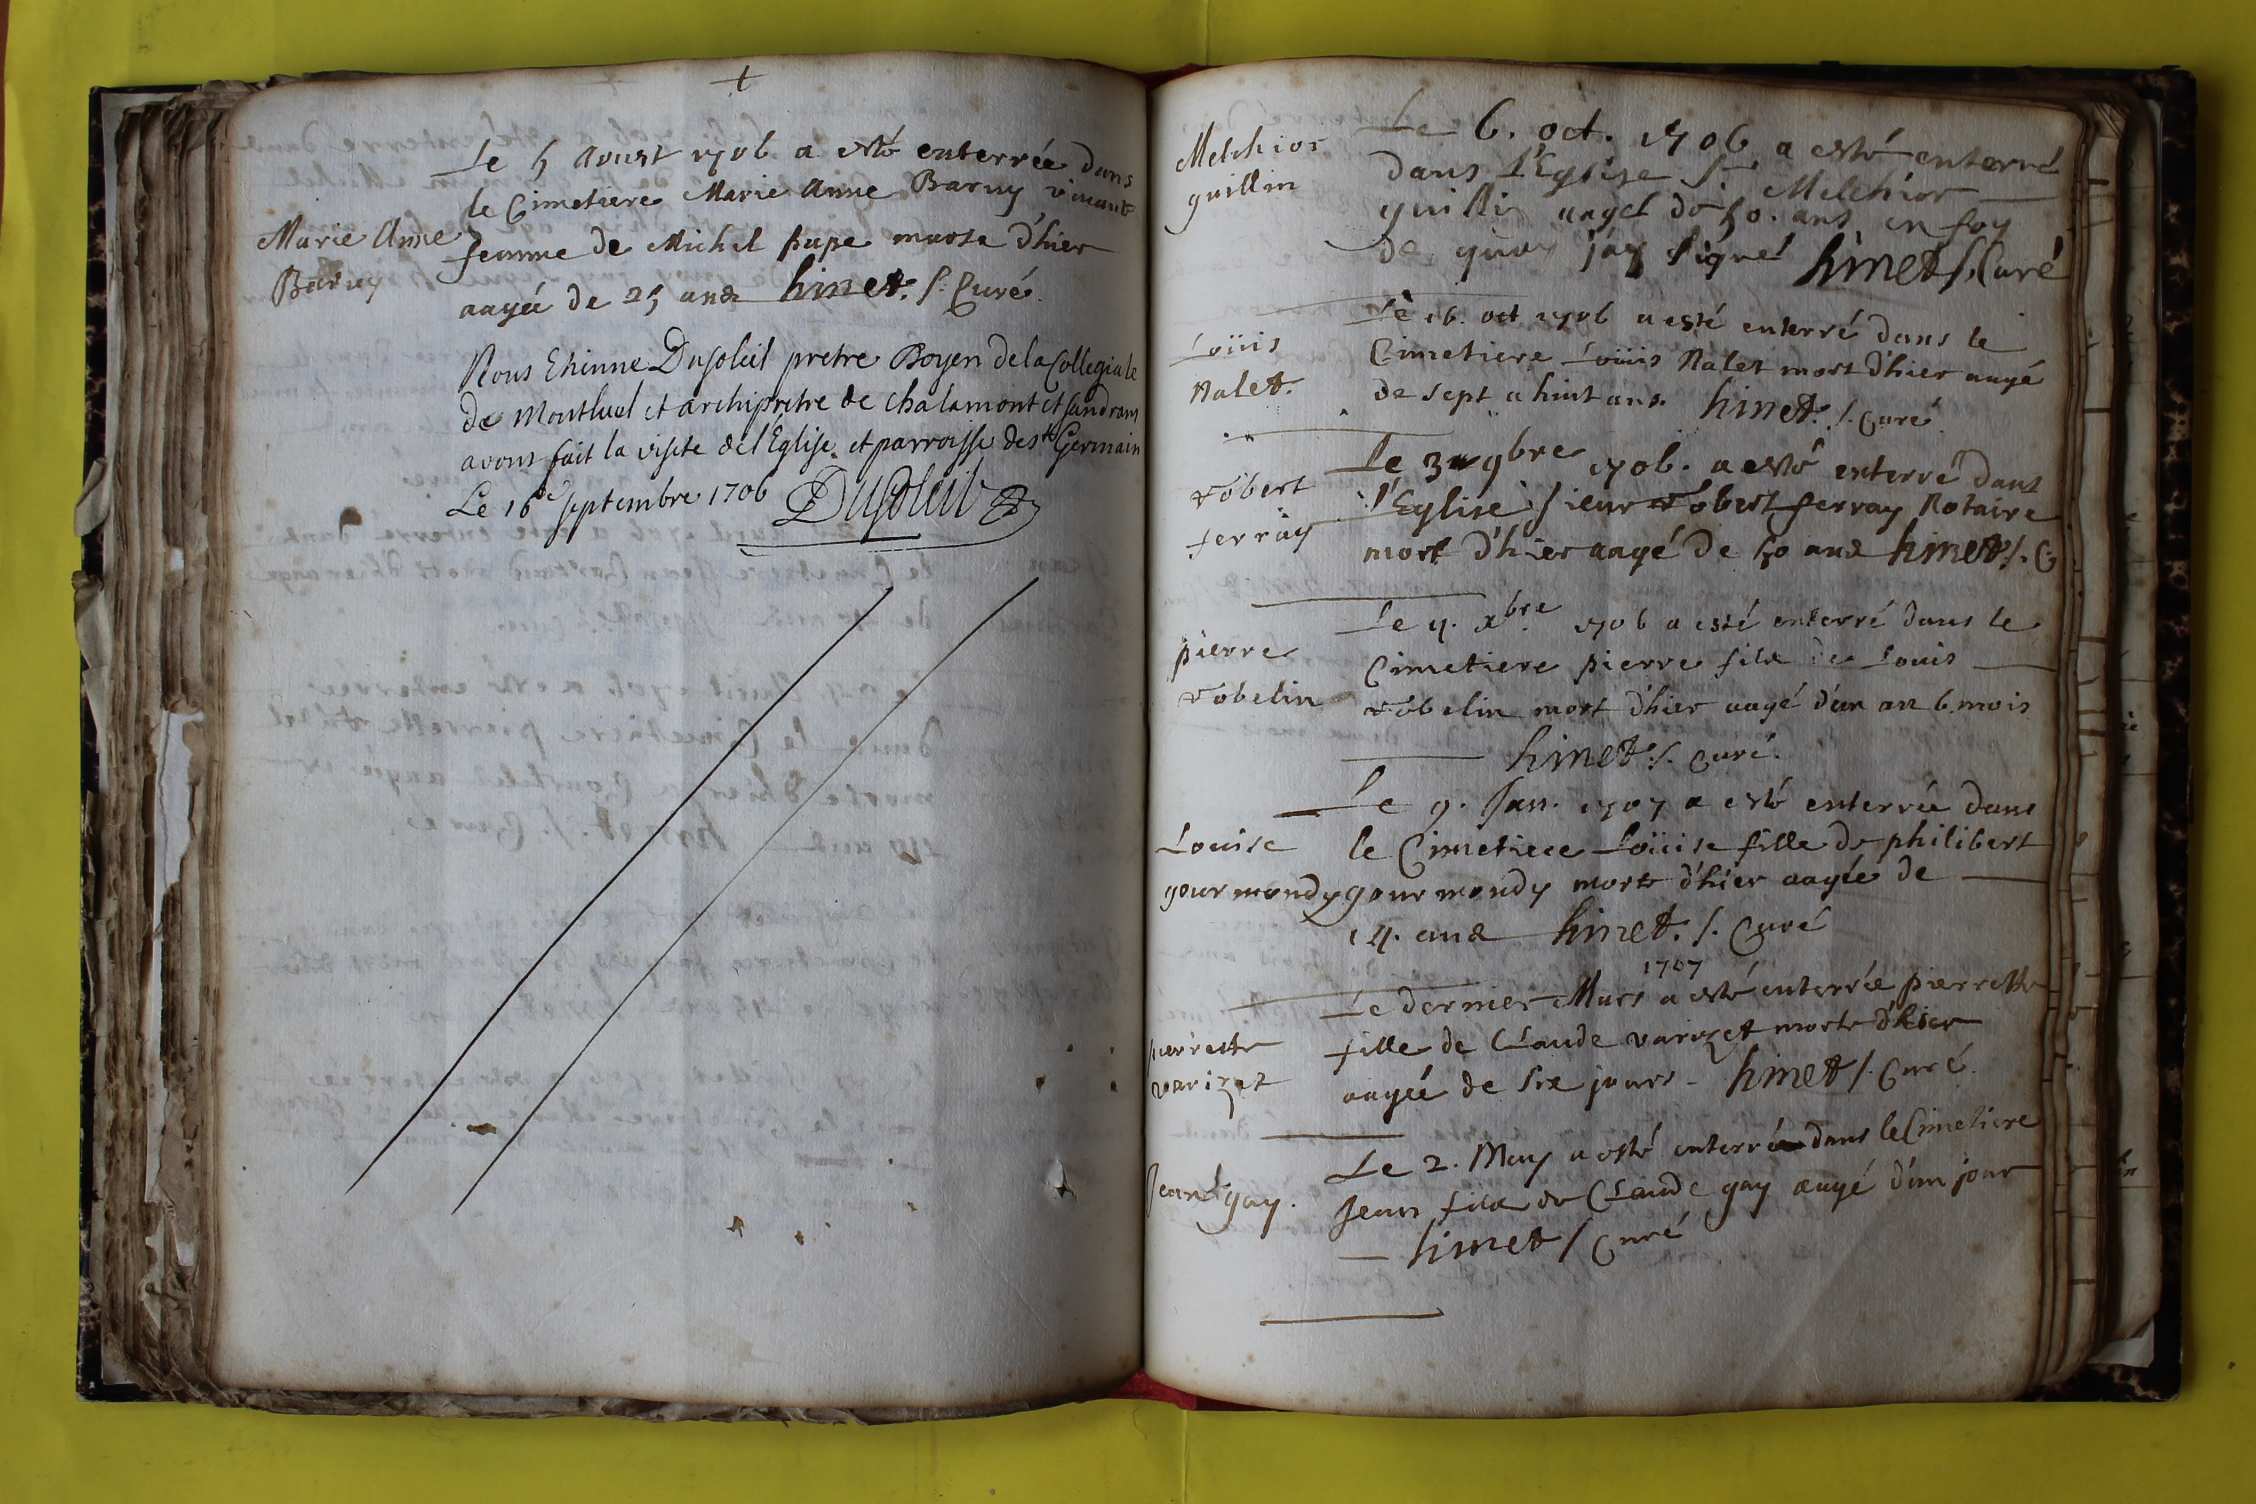 Le 5 Aoust 1706 a esté enterrée dans
le Cimetiere Marie Anne Baruy vivante
Marie Anne
Baruy
femme de Michel pape morte d'hier
aagée de 25 ans himet. S. Curé.
Nous Etienne Dusoleil pretre Doyen de la Collegiale
de Montluel et archipretre de chalamont et sandrans
avons fait la visite de l'Eglise et parroisse de st Germain
Le 16e septembre 1706 Dusoleil
Melchior
guillin
Le 6. oct. 1706 a esté enterré
dans l'Eglise Sr Melchior
guillin aagé de 50. ans en foy
de quoy j'ay signé himet S. Curé
Loüis
Nalet.
Le 16. oct 1706 a esté enterré dans le
Cimetiere Loüis Nalet mort d'hier aagé
de sept a huit ans. himet. S. Curé.
robert
ferray
Le 3 9bre 1706. a esté enterré dans
l'Eglise sieur robert ferray Notaire
mort d'hier aagé de 50 ans himet S. C
pierre
robelin
Le 4. Xbre 1706 a esté enterré dans le
Cimetiere pierre fils de Louis
robelin mort d'hier aagé d'un an 6. mois
himet. S. Curé.
Louise
gourmondy
Le 9. Jan. 1707 a esté enterrée dans
le Cimetiere Loüise fille de philibert
gourmondy morte d'hier aagée de
14. ans himet. S. Curé
pierrette
varizet
1707
Le dernier Mars a esté enterrée pierrette
fille de Claude varizet morte d'hier
aagée de six jours - himet S. Curé.
Jean gay.
Le 2. May a esté enterré dans le Cimetiere
Jean fils de Claude gay aagé d'un jour
himet S Curé